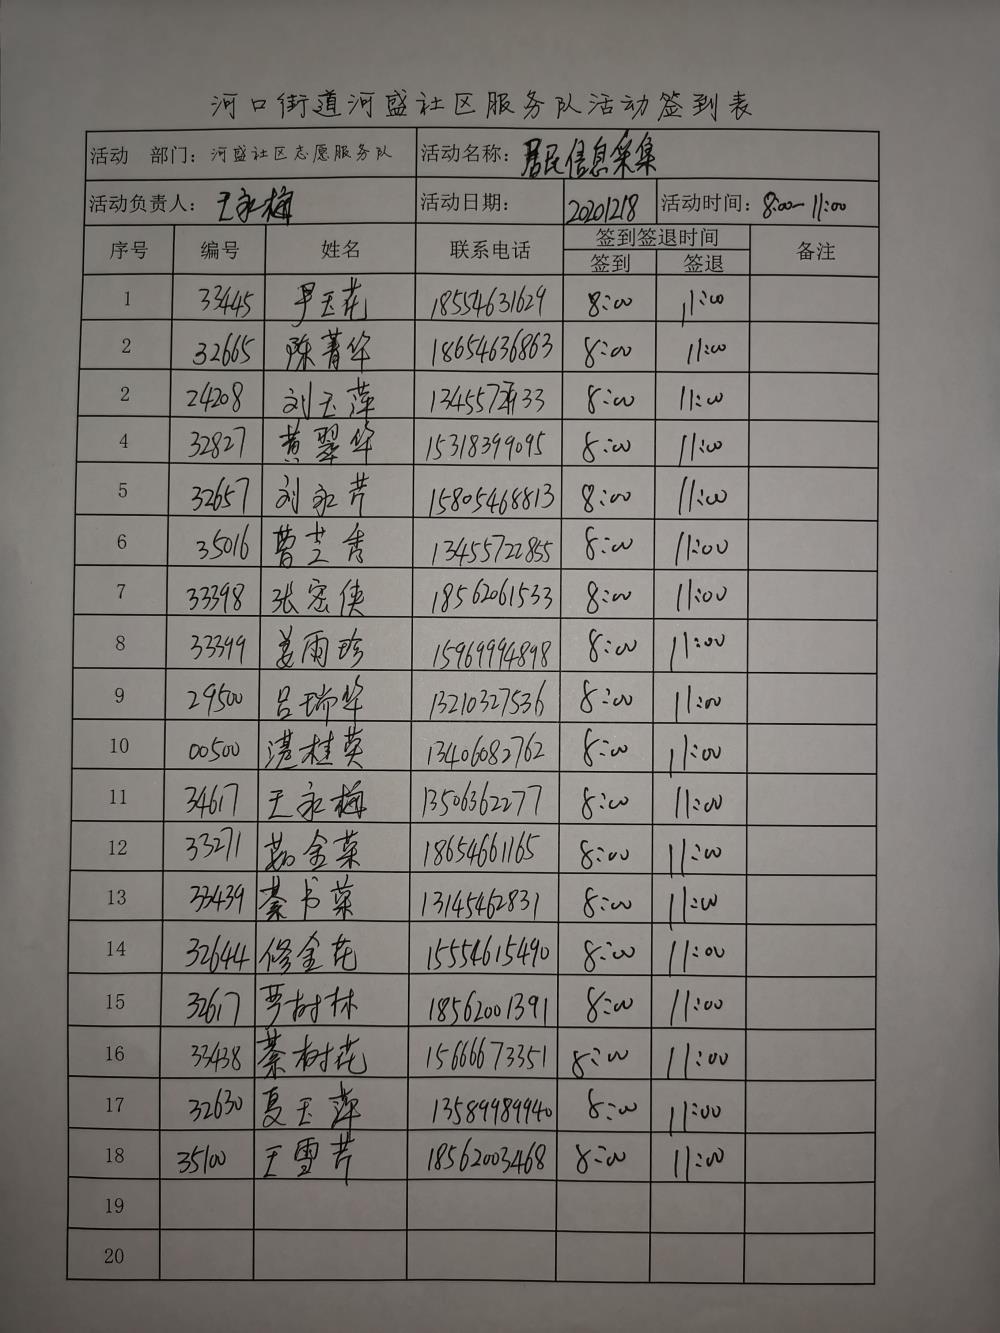 河口街道河盛社区服务队活动签到表
活动 部门：河盛社区志愿服务队 活动名称：居民信息采集
活动负责人：王永梅 活动日期：20201218 活动时间：8:00-11:00
序号 编号 姓名 联系电话 签到签退时间 备注
签到 签退
1 33445 尹玉花 18554631629 8:00 11:00
2 32665 陈菁华 18654636863 8:00 11:00
2 24208 刘玉萍 8:00 11:00
4 32827 黄翠华 15318399095 8:00 11:00
5 32657 刘永芹 15805468813 8:00 11:00
6 35016 曹芝秀 13455722855 8:00 11:00
7 33398 张宏侠 18562061533 8:00 11:00
8 33399 姜雨珍 15969994898 8:00 11:00
9 29500 吕瑞华 13210327536 8:00 11:00
10 00500 桂英 13406082762 8:00 11:00
11 34617 王永梅 13506362277 8:00 11:00
12 33271 金菜 18654661165 8:00 11:00
13 33439 綦书菜 13145462831 8:00 11:00
14 32644 修金花 15554615490 8:00 11:00
15 32617 树林 18562001391 8:00 11:00
16 33438 綦树花 15666673351 8:00 11:00
17 32630 夏玉萍 13589989940 8:00 11:00
18 35100 王雪芹 18562003468 8:00 11:00
19
20